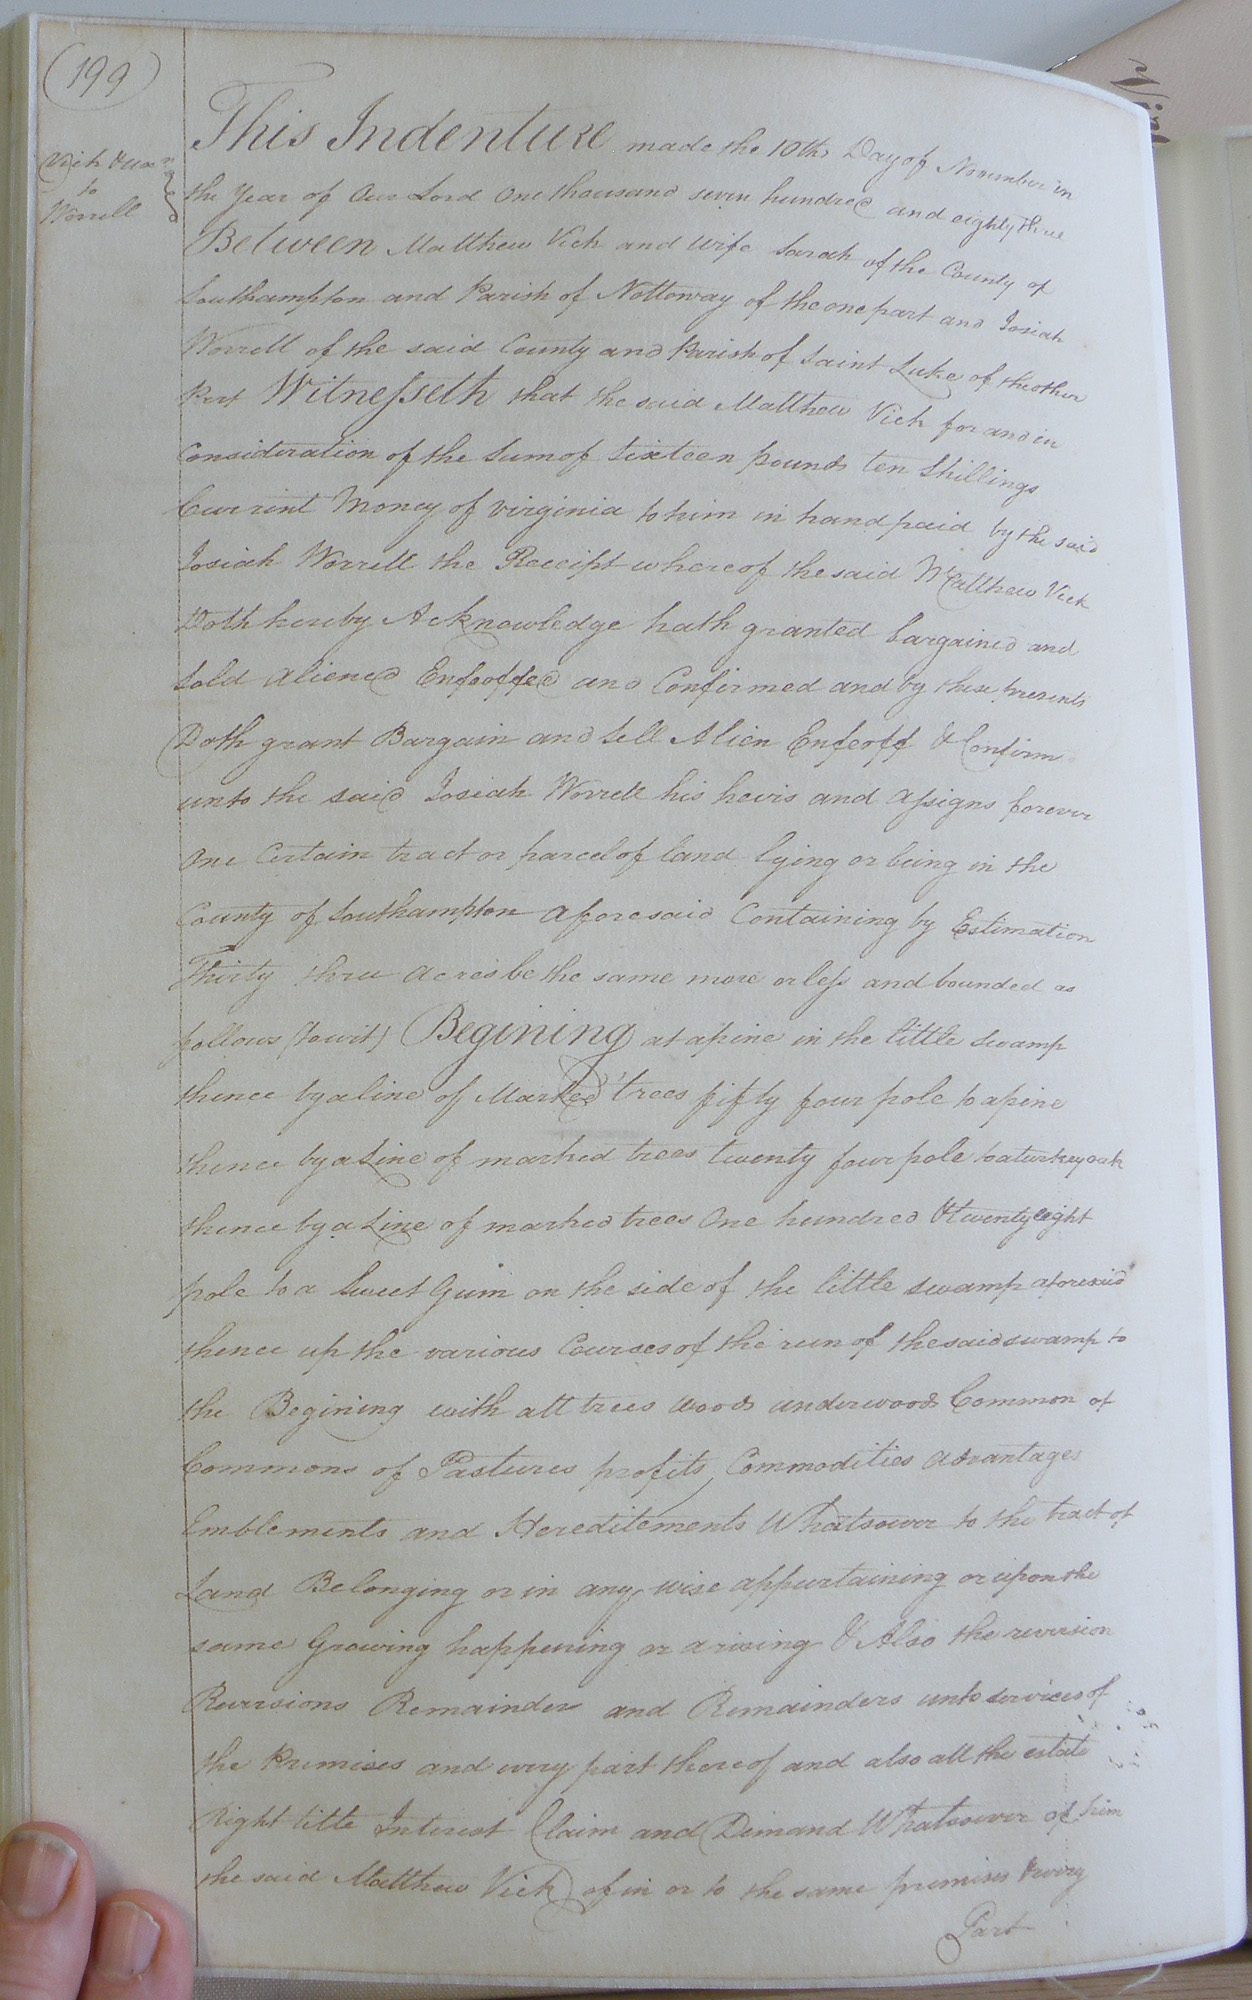 (199)
Vick & Ux
to
Worrell
This Indenture made the 10th Day of November in
the Year of Our Lord One thousand seven hundred and eighty three
Between Matthew Vick and wife Sarah of the County of
Southampton and Parish of Nottoway of the one part and Josiah
Worrell of the said County and Parish of Saint Luke of the other
Part Witnesseth that the said Matthew Vick for and in
Consideration of the Sum of Sixteen pounds ten Shillings
Current Money of virginia to him in hand paid by the said
Josiah Worrell the Receipt whereof the said Matthew Vick
Doth hereby Acknowledge hath granted bargained and
Sold Aliened Enfeoffed and Confirmed and by these presents
Doth grant Bargain and Sell Alien Enfeoff & Confirm
unto the said Josiah Worrell his heirs and assigns forever
One Certain tract or parcel of land lying or being in the
County of Southampton aforesaid Containing by Estimation
Thirty three acres be the same more or less and bounded as
follows (towit) Begining at a pine in the little swamp
thence by a line of Marked trees fifty four pole to a pine
thence by a Line of marked trees twenty four pole to a turkey oak
thence by a Line of marked trees One hundred & twenty eight
pole to a Sweet Gum on the side of the little swamp aforesaid
thence up the various Courses of the run of the said swamp to
the Begining with all trees woods underwoods Common of
Commons of Pastures profits Commodities advantages
Emblements and Hereditements Whatsoever to the tract of
Land Belonging or in any wise appurtaining or upon the
same Growing happening or arising & Also the reversion
Reversions Remainder and Remainders unto services of
the Premises and every part thereof and also all the estate
Right title Interest Claim and Demand Whatsoever of him
the said Matthew Vick of in or to the same premises & every
Part